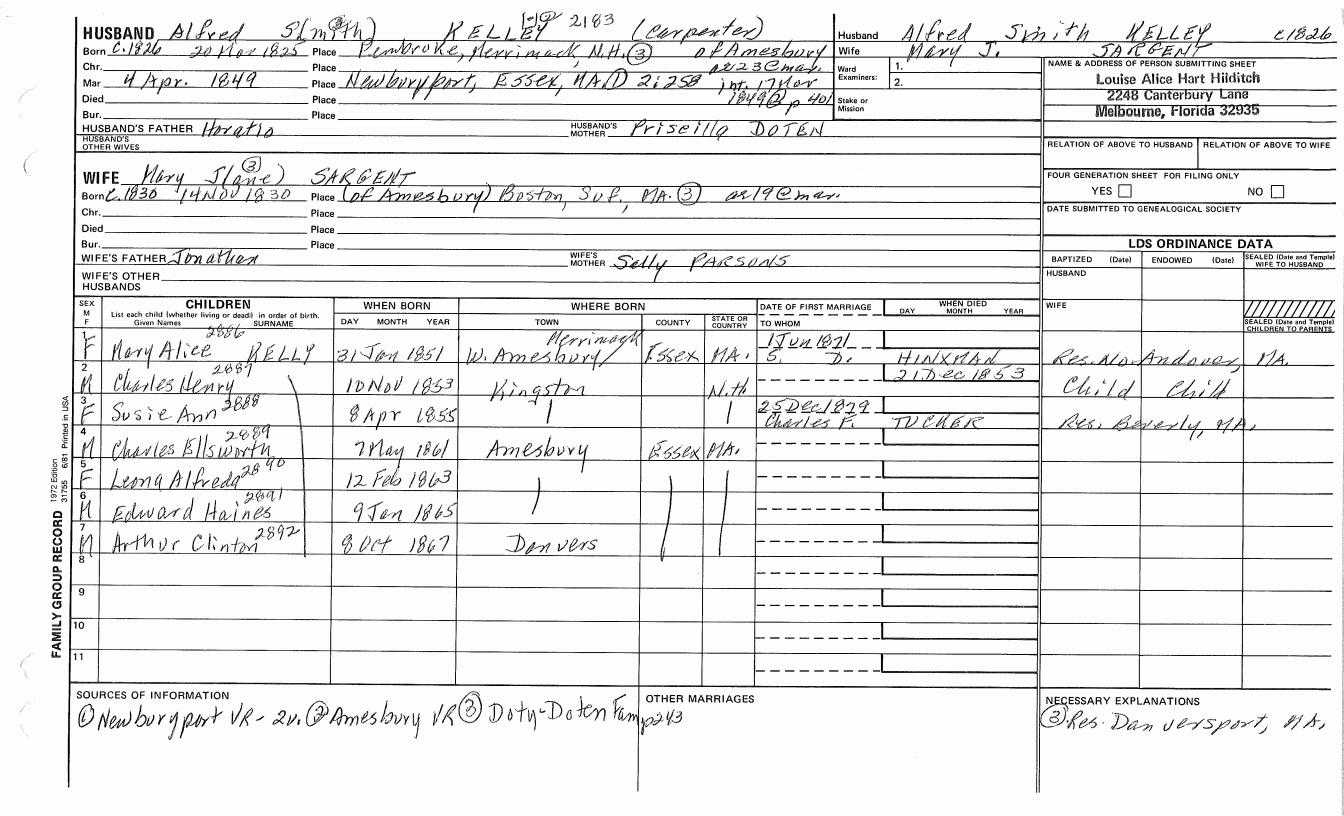 HUSBAND Alfred S(mith) ③ KELLEY 2183 (carpenter)
Born c.1826 20 Mar 1825 Place Pembroke, Merrimack, N.H. ③ of Amesbury
Chr. Place ae 23 @ mar.
Mar 4 Apr. 1849 Place Newburyport, Essex, MA. ① 2:258 int. 17 Mar
Died Place 1849 ② p 401
Bur. Place
HUSBAND'S FATHER Horatio HUSBAND'S MOTHER Priscilla DOTEN
HUSBAND'S OTHER WIVES
WIFE Mary J(ane) ③ SARGENT
Born C.1830 14 Nov 1830 Place (of Amesbury) Boston, Suf., MA. ③ ae 19 @ mar.
Chr. Place
Died Place
Bur. Place
WIFE'S FATHER Jonathan WIFE'S MOTHER Sally PARSONS
WIFE'S OTHER HUSBANDS
Husband Alfred Smith KELLEY c1826
Wife Mary J. SARGENT
Ward Examiners: 1.
2.
Stake or Mission
NAME & ADDRESS OF PERSON SUBMITTING SHEET
Louise Alice Hart Hilditch
2248 Canterbury Lane
Melbourne, Florida 32935
RELATION OF ABOVE TO HUSBAND RELATION OF ABOVE TO WIFE
FOUR GENERATION SHEET FOR FILING ONLY
YES NO
DATE SUBMITTED TO GENEALOGICAL SOCIETY
LDS ORDINANCE DATA
BAPTIZED (Date) ENDOWED (Date) SEALED (Date and Temple) WIFE TO HUSBAND
HUSBAND
WIFE
SEALED (Date and Temple) CHILDREN TO PARENTS
SEX M F CHILDREN WHEN BORN WHERE BORN DATE OF FIRST MARRIAGE WHEN DIED
List each child (whether living or dead) in order of birth. DAY MONTH YEAR
Given Names SURNAME DAY MONTH YEAR TOWN COUNTY STATE OR COUNTRY TO WHOM
1 F Mary Alice 2886 KELLY 31 Jan 1851 W. Amesbury/ Merrimack Essex MA. 1 Jun 1871
S. D. HINXMAN Res. No. Andover, MA.
2 M Charles Henry 2887 10 Nov 1853 Kingston N.H. 21 Dec 1853 Child Child
3 F Susie Ann 2888 8 Apr 1855 25 Dec 1879
Charles F. TUCKER Res. Beverly, MA.
4 M Charles Ellsworth 2889 7 May 1861 Amesbury Essex MA.
5 F Leona Alfreda 2890 12 Feb 1863
6 M Edward Haines 2891 9 Jan 1865
7 M Arthur Clinton 2892 8 Oct 1867 Danvers
8
9
10
11
FAMILY GROUP RECORD 1972 Edition 31755 6/81 Printed in USA
SOURCES OF INFORMATION OTHER MARRIAGES NECESSARY EXPLANATIONS
① Newburyport VR - 2v. ② Amesbury VR ③ Doty-Doten Fam p243
③ Res. Danversport, MA.